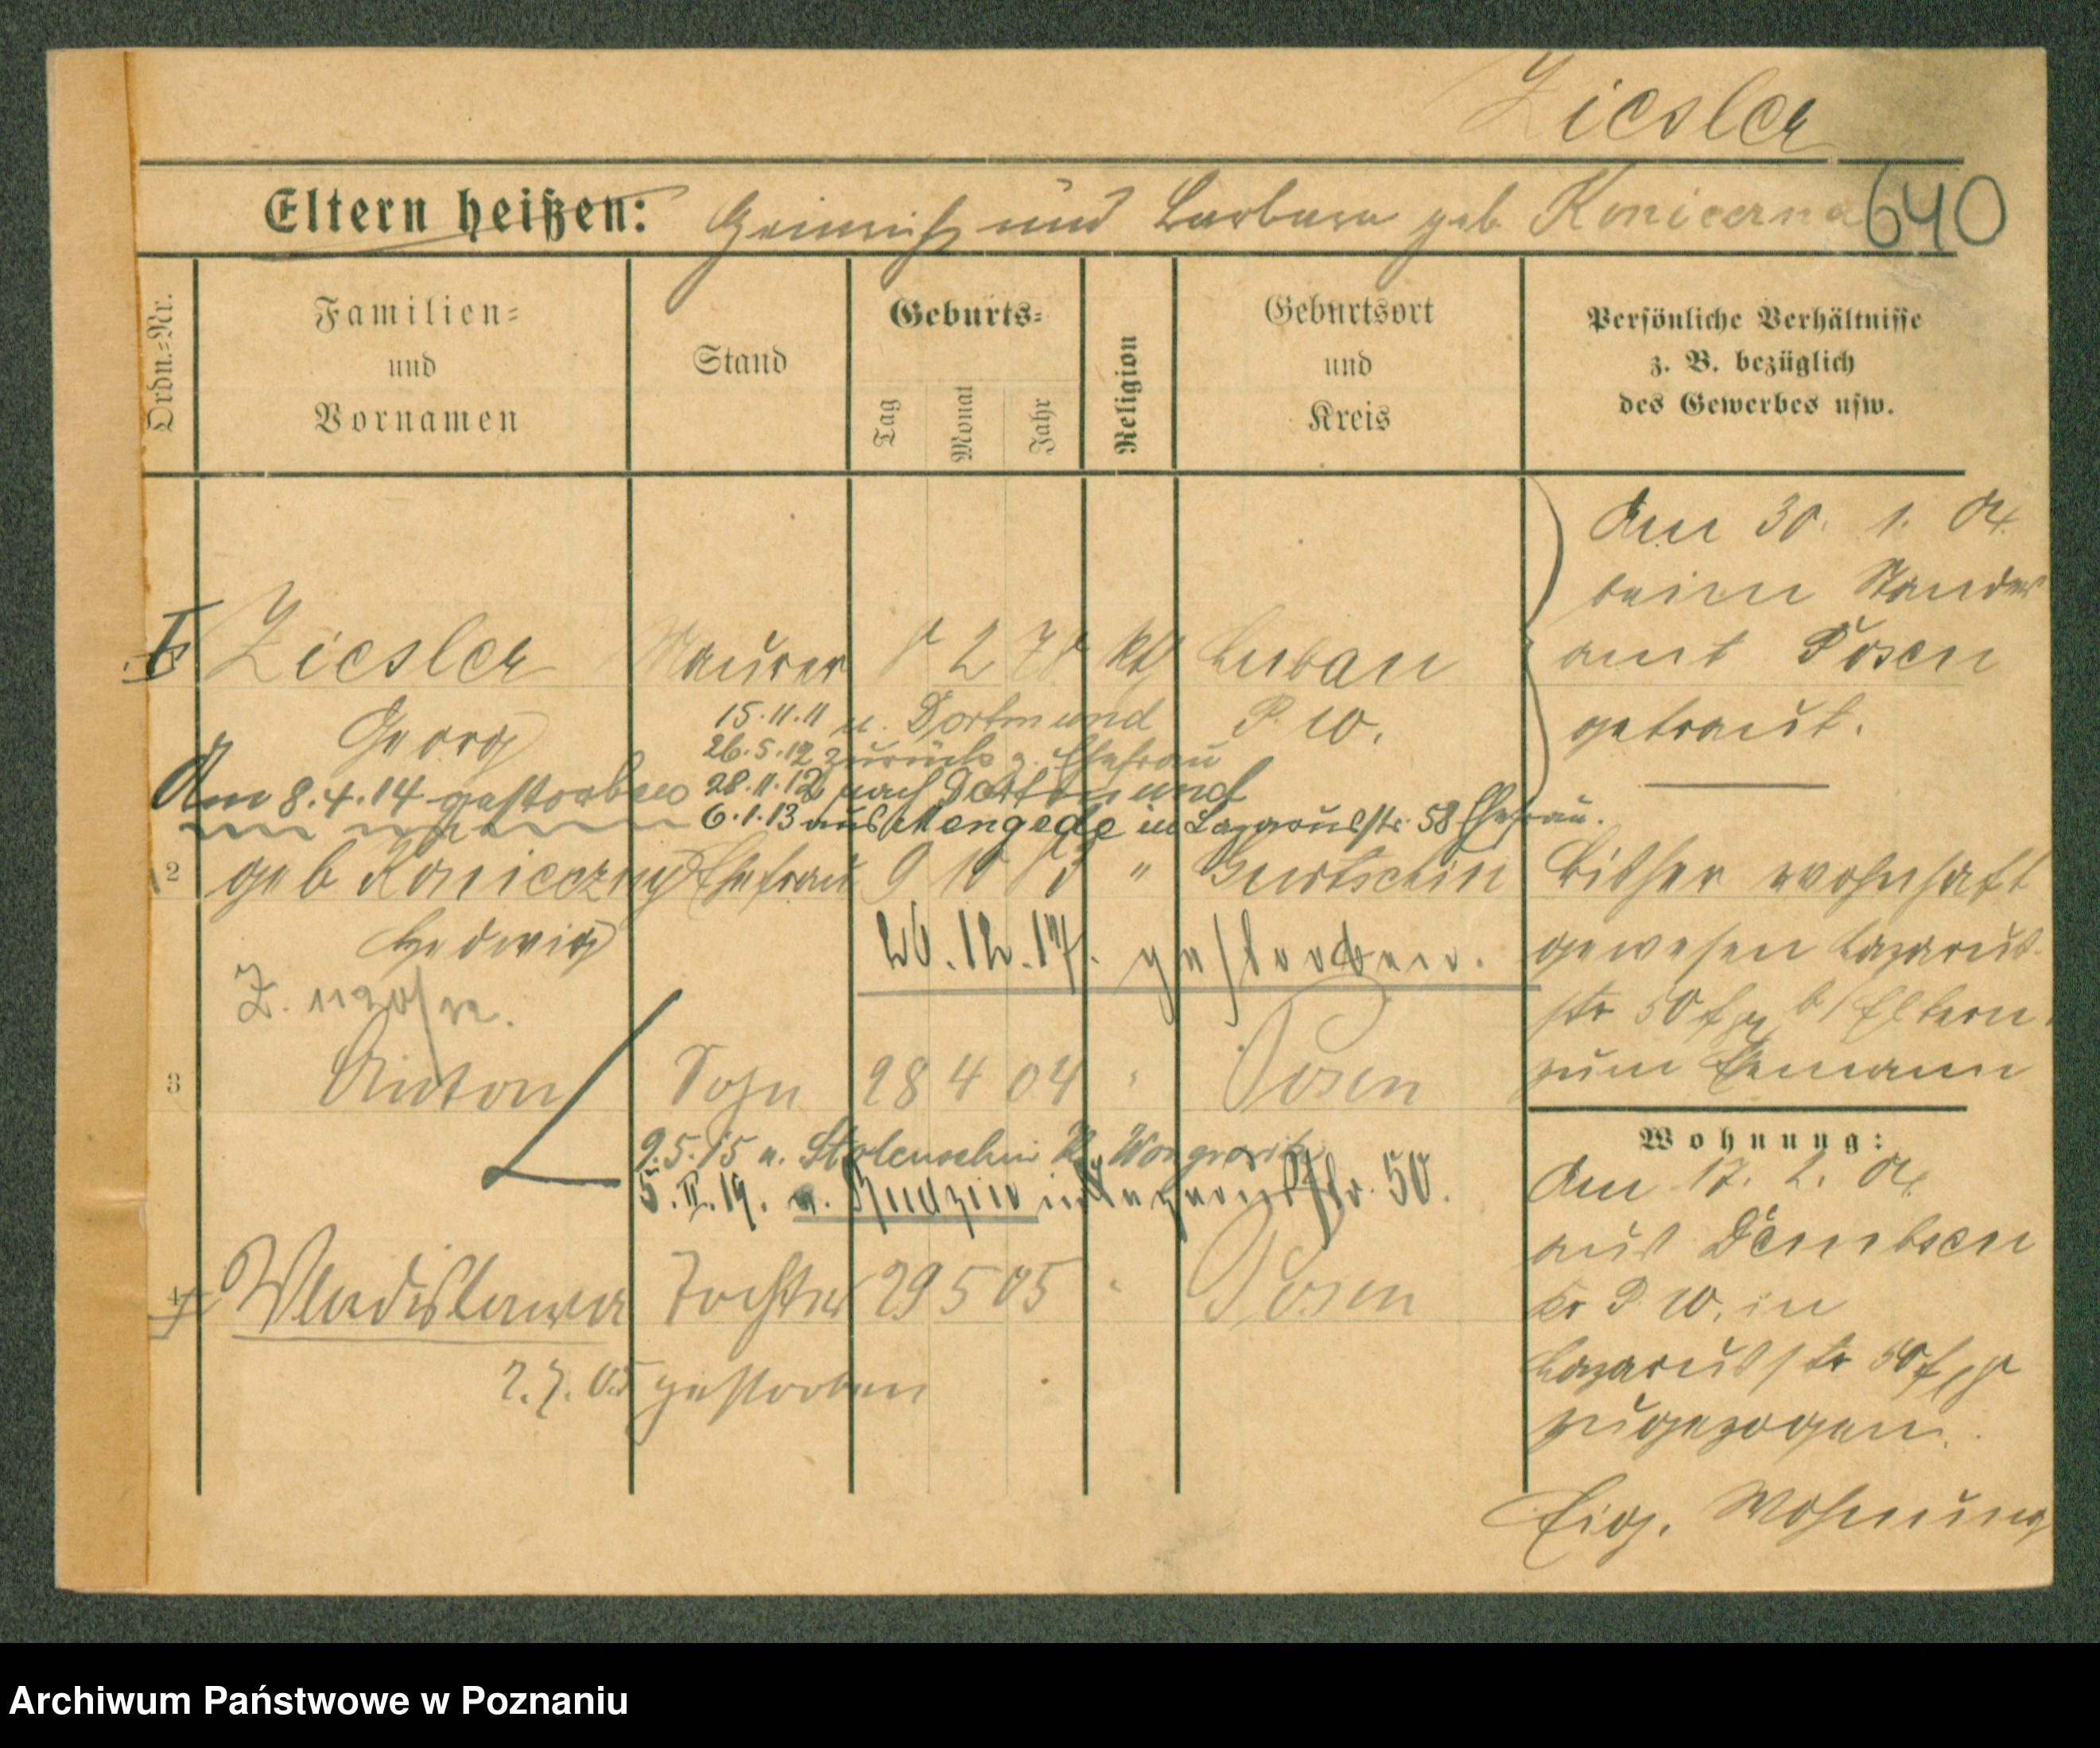 Ziesler
640
Eltern heißen: Heinrich und Barbara geb. Konicerna
Ordn.=Nr.
Familien=
und
Vornamen
Stand
Geburts=
Tag
Monat
Jahr
Religion
Geburtsort
und
Kreis
Persönliche Verhältnisse
z. B. bezüglich
des Gewerbes usw.
Am 30. 1. 04
beim Standes
amt Posen
getraut.
Ziesler Maurer 8 2 78 kth Luban
Georg
P. W.
15.11.11 n. Dortmund
26.5.12 zurück z. Ehefrau
Am 8.4.14 gestorben
28.11.12 nach Dortmund
6.1.13 aus Mengede in Lazarusstr. 58 Ehefrau.
2 geb Konieczny Ehefrau 9 10 " Gurtschin
Hedwig
26.12.17. gestorben.
Bisher wohnhaft
gewesen Lazarus-
str 50 b/ Eltern.
zum Ehemann
3 Anton Sohn 28 4 04 " Posen
9.5.15 n. Stolenschin Kr. Wongrowitz
5.II.19. v. Budzin in Lazarusstr. 50.
4 Wladislawa Tochter 29 5 05 " Posen
2.7.05 gestorben
Wohnung:
Am 17. 2. 04
aus Dembsen
Kr P. W. in
Lazarusstr 50
zugezogen.
Eig. Wohnung
Archiwum Państwowe w Poznaniu